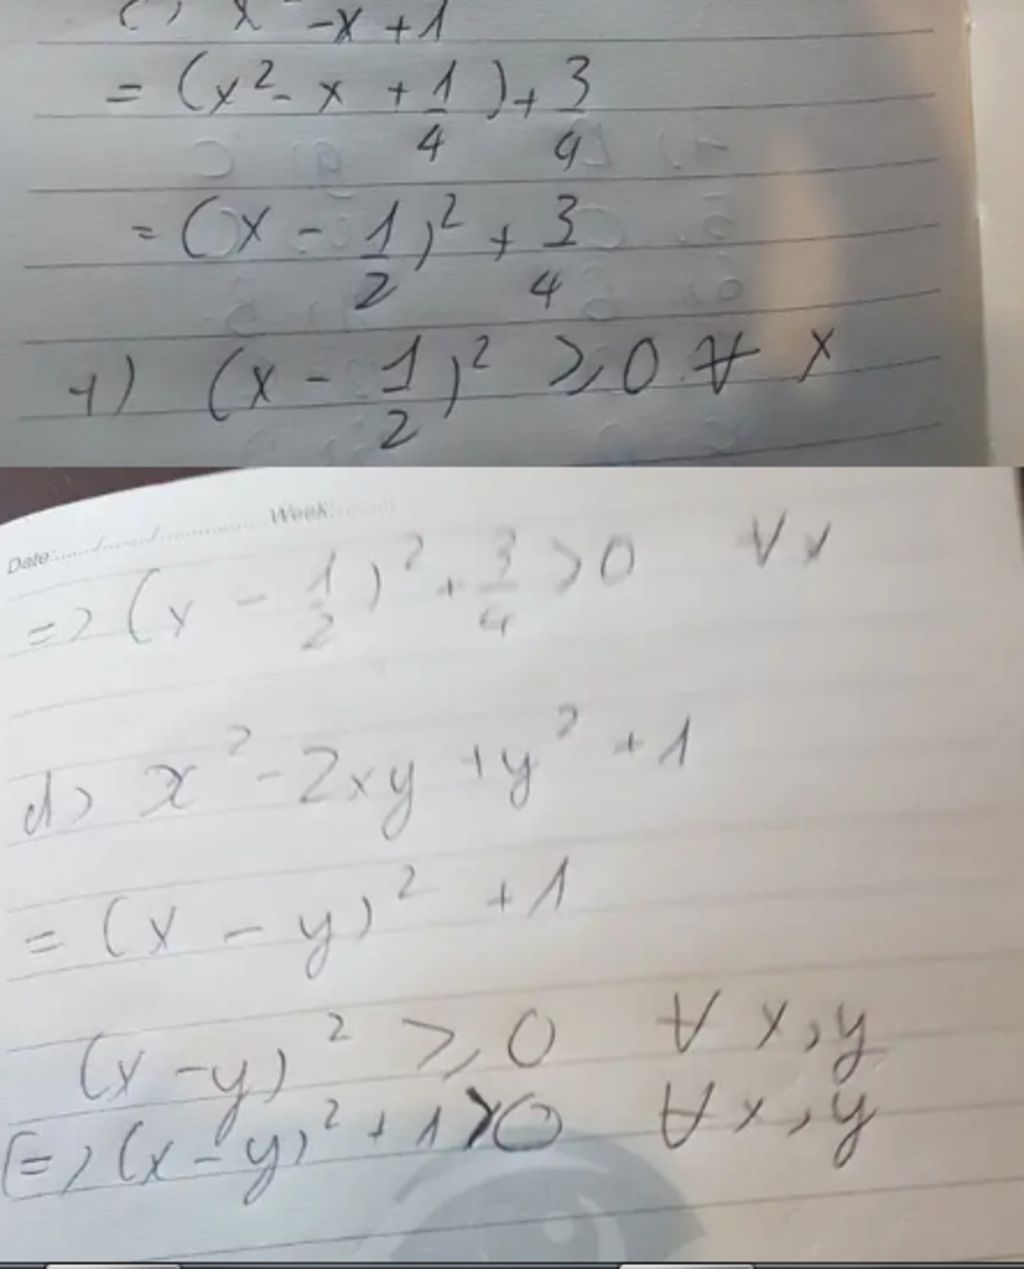 c) x² - x + 1
= (x² - x + 1/4) + 3/4
= (x - 1/2)² + 3/4
(x - 1/2)² ≥ 0 ∀ x
Date:....../....../.................Week:............
=> (x - 1/2)² + 3/4 > 0 ∀ x
d) x² - 2xy + y² + 1
= (x - y)² + 1
(x - y)² ≥ 0 ∀ x, y
=> (x - y)² + 1 > 0 ∀ x, y